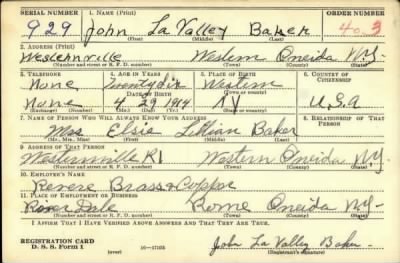 SERIAL NUMBER 1. NAME (Print) ORDER NUMBER
929 John La Valley Baker
(First) (Middle) (Last)
2. ADDRESS (Print)
Westernville Western Oneida N.Y.
(Number and street or R. F. D. number) (Town) (County) (State)
3. TELEPHONE 4. AGE IN YEARS 5. PLACE OF BIRTH 6. COUNTRY OF CITIZENSHIP
None Twenty Six Western
DATE OF BIRTH (Town or county)
None 4 29 1914 NY U.S.A
(Exchange) (Number) (Mo.) (Day) (Yr.) (State or country)
7. NAME OF PERSON WHO WILL ALWAYS KNOW YOUR ADDRESS 8. RELATIONSHIP OF THAT PERSON
Mrs Elsie Lillian Baker
(Mr., Mrs., Miss) (First) (Middle) (Last)
9. ADDRESS OF THAT PERSON
Westernville R1 Western Oneida N.Y.
(Number and street or R. F. D. number) (Town) (County) (State)
10. EMPLOYER'S NAME
Revere Brass & Copper
11. PLACE OF EMPLOYMENT OR BUSINESS
Dale Rome Oneida N.Y.
(Number and street or R. F. D. number) (Town) (County) (State)
I AFFIRM THAT I HAVE VERIFIED ABOVE ANSWERS AND THAT THEY ARE TRUE.
REGISTRATION CARD
D. S. S. Form 1 (over) 16—17105 John La Valley Baker
(Registrant's signature)